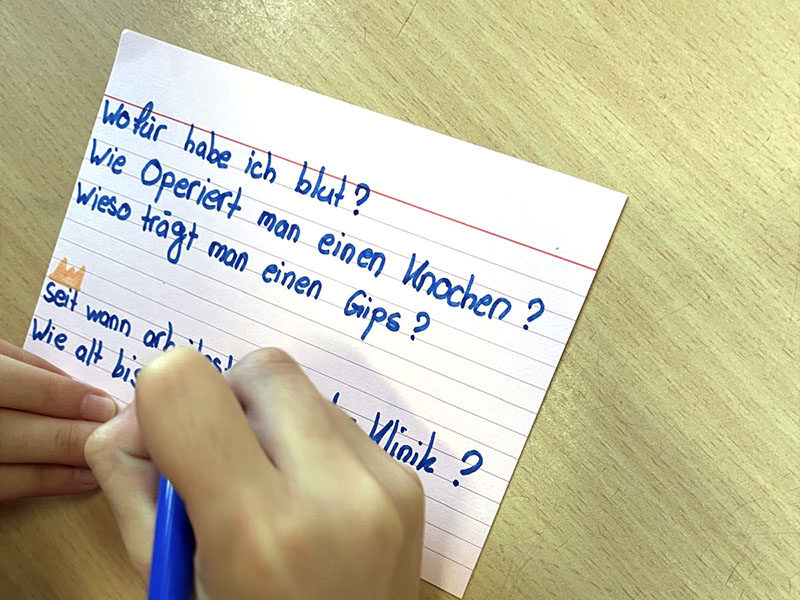 Wofür habe ich blut?
Wie Operiert man einen Knochen?
Wieso trägt man einen Gips?
Seit wann Klinik?
Wie alt